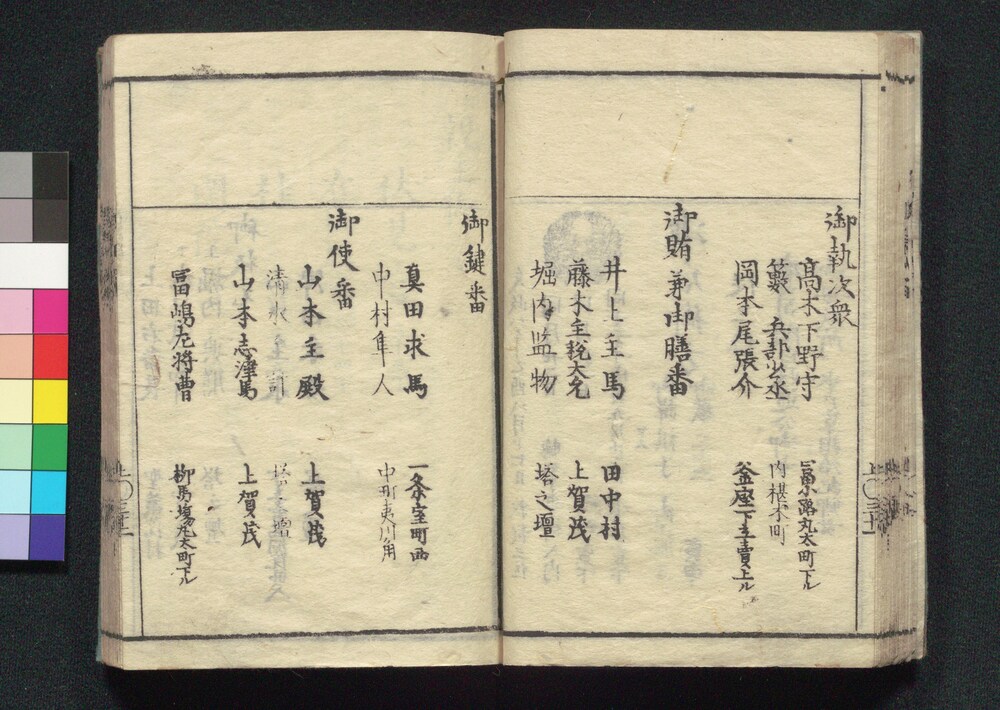 御執次衆
高木下野守 富小路丸太町下ル
藪 兵部少丞 内椹木町
岡本尾張介 釜座下立賣上ル
御賄兼御膳番
井上主馬 田中村
藤木主税大允 上賀茂
堀内監物 塔之壇
御鍵番
真田求馬 一条室町西
中村隼人 中町夷川角
御使番
山本主殿 上賀茂
清水主 塔之壇
山本志津馬 上賀茂
冨嶋左将曹 柳馬場丸太町下ル